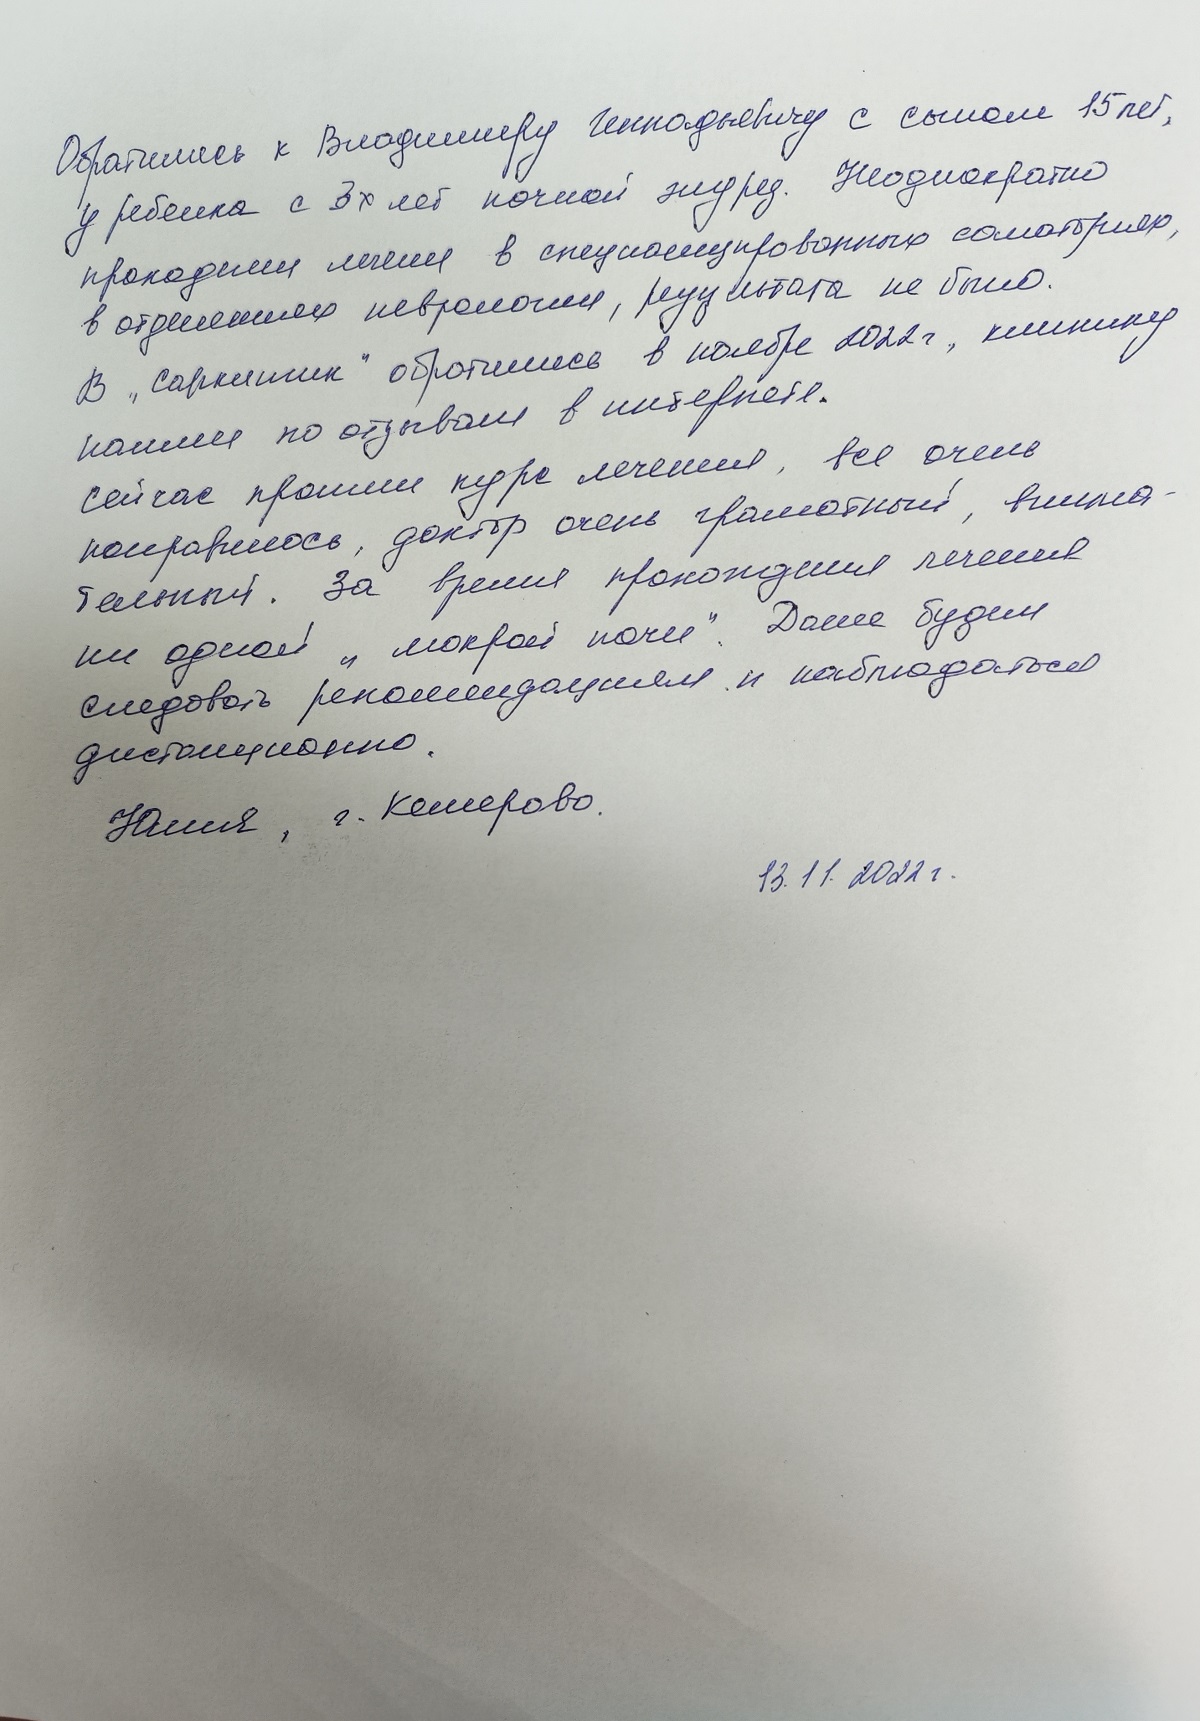 Обратились к Владимиру Геннадьевичу с сыном 15 лет,
у ребенка с 3х лет ночной энурез. Неоднократно
проходили лечение в специализированных санаториях,
в отделениях неврологии, результата не было.
В „Саркилик" обратились в ноябре 2022г., клинику
нашли по отзывам в интернете.
Сейчас прошли курс лечения, все очень
понравилось, доктор очень грамотный, внима-
тельный. За время прохождения лечения
ни одной „мокрой ночи". Далее будем
следовать рекомендациям и наблюдаться
дистанционно.
Юлия, г. Кемерово.
13.11.2022г.